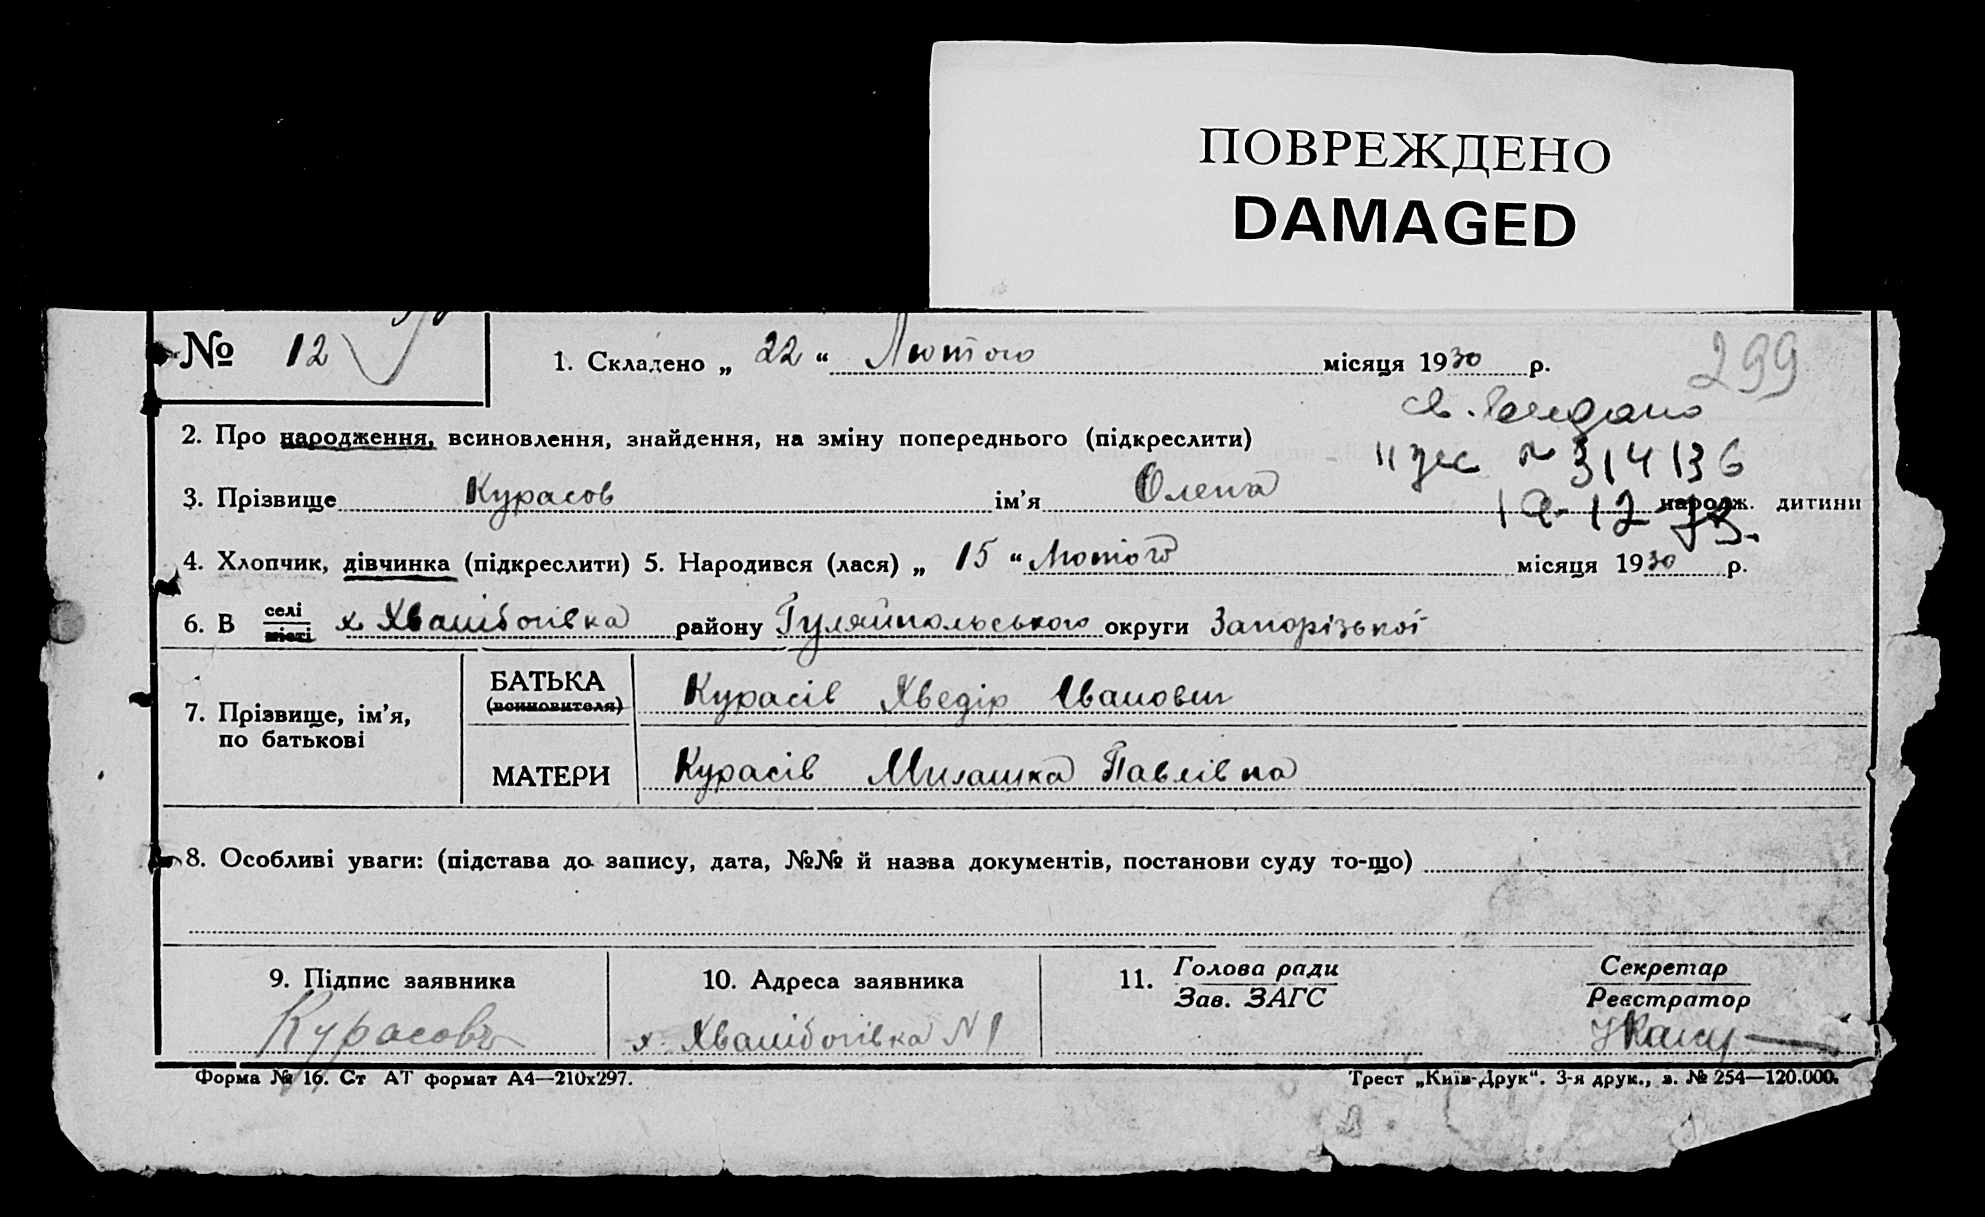 ПОВРЕЖДЕНО
DAMAGED
№ 12
1. Складено „ 22 “ Лютого місяця 1930 р.
299
св.
2. Про народження, всиновлення, знайдення, на зміну попереднього (підкреслити)
№ 314136
3. Прізвище Курасов ім’я Олена народж. дитини
19-12-73.
4. Хлопчик, дівчинка (підкреслити) 5. Народився (лася) „ 15 “ Лютого місяця 1930 р.
6. В селі місті х. Хвашбогівка району Гуляйпольського округи Запорізької
7. Прізвище, ім’я, по батькові
БАТЬКА (всиновителя) Курасів Хведір Іванович
МАТЕРИ Курасів Милашка Павлівна
8. Особливі уваги: (підстава до запису, дата, №№ й назва документів, постанови суду то-що)
9. Підпис заявника
10. Адреса заявника
11. Голова ради
Зав. ЗАГС
Секретар
Реєстратор
Курасовъ
х. Хвашбогівка N 1
Форма № 16. Ст АТ формат А4—210х297.
Трест „Київ-Друк“. 3-я друк., з. № 254—120.000.